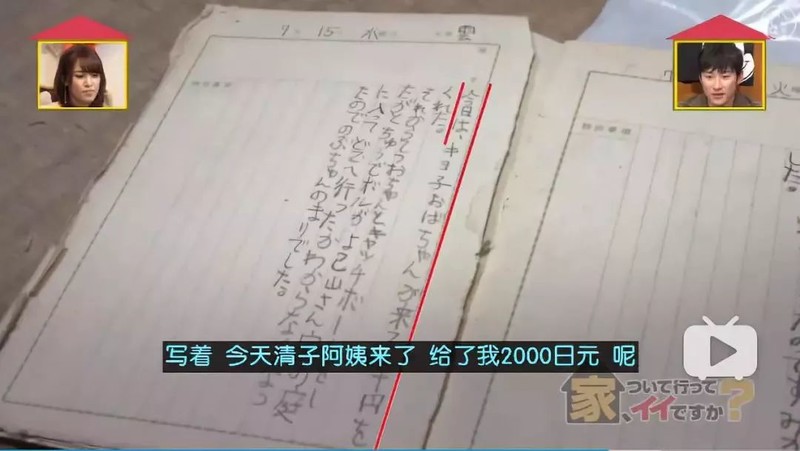 7 15 水 雲
今日は、キヨ子おばちゃんが来 千円を
くれた。
それから おちゃんとキャッチボー
たがとちゅうでボルが 山さん
に入って どこへ行ったかわからな
たのでのぶちゃんのまりでした。
7 火
写着 今天清子阿姨来了 给了我2000日元 呢
家、ついて行ってイイですか?